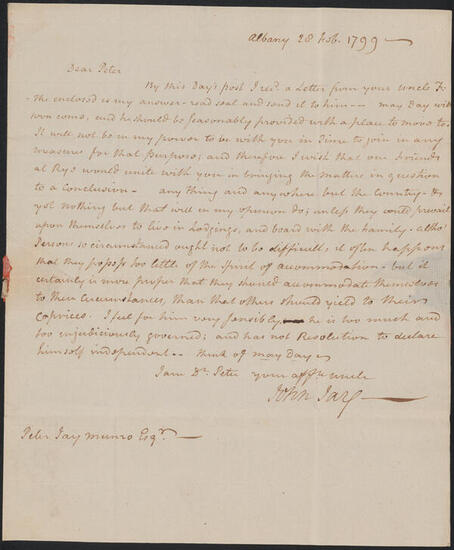 Albany 28 Feb. 1799
Dear Peter
By this Day's post I recd. a Letter from your uncle
the enclosed is my answer - read seal and send it to him -- may Day will
soon come, and he should be seasonably provided with a place to move to.
It will not be in my power to be with you in Time to join in any
measures for that Purpose; and therefore I wish that our Friends
at Rye would unite with you in bringing the matter in question
to a Conclusion - any thing and anywhere but the Country - &
yet nothing but that will in my opinion do; unless they could prevail
upon themselves to live in Lodgings, and board with the Family - altho'
Persons so circumstanced ought not to be difficult, it often happens
that they possess too little of the Spirit of accommodation - but it
certainly is more proper that they should accommodate themselves
to their Circumstances, than that others should yield to their
Caprices. I feel for him very sensibly, he is too much and
too injudiciously governed; and has not Resolution to declare
himself independent -- think of may Day -
I am Dr. Peter your affte. uncle
John Jay
Peter Jay Munro Esqr.